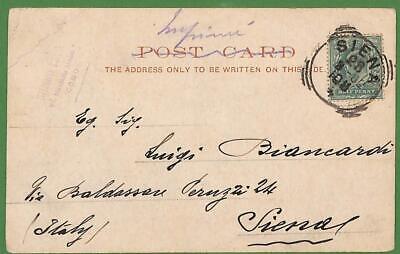 imprimé
POST CARD
THE ADDRESS ONLY TO BE WRITTEN ON THIS SIDE.
SIENA
HALF PENNY
Eg. Sig.
Luigi Biancardi
Via Baldassare Peruzzi 24
(Italy) Siena